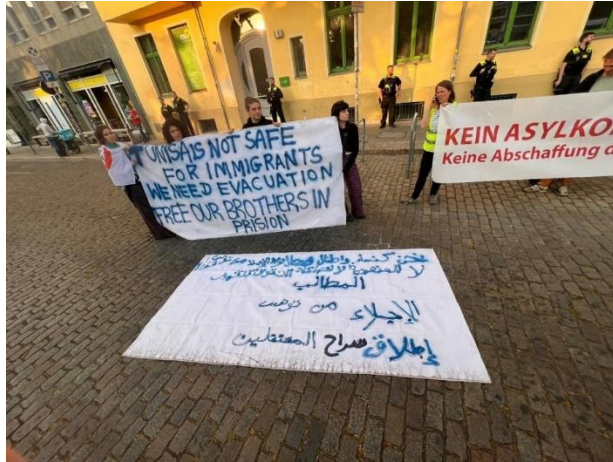 TUNISA IS NOT SAFE
FOR IMMIGRANTS
WE NEED EVACUATION
FREE OUR BROTHERS IN
PRISION
KEIN ASYLKO
Keine Abschaffung d
المطالب
الإجلاء من تونس
إطلاق سراح المعتقلين